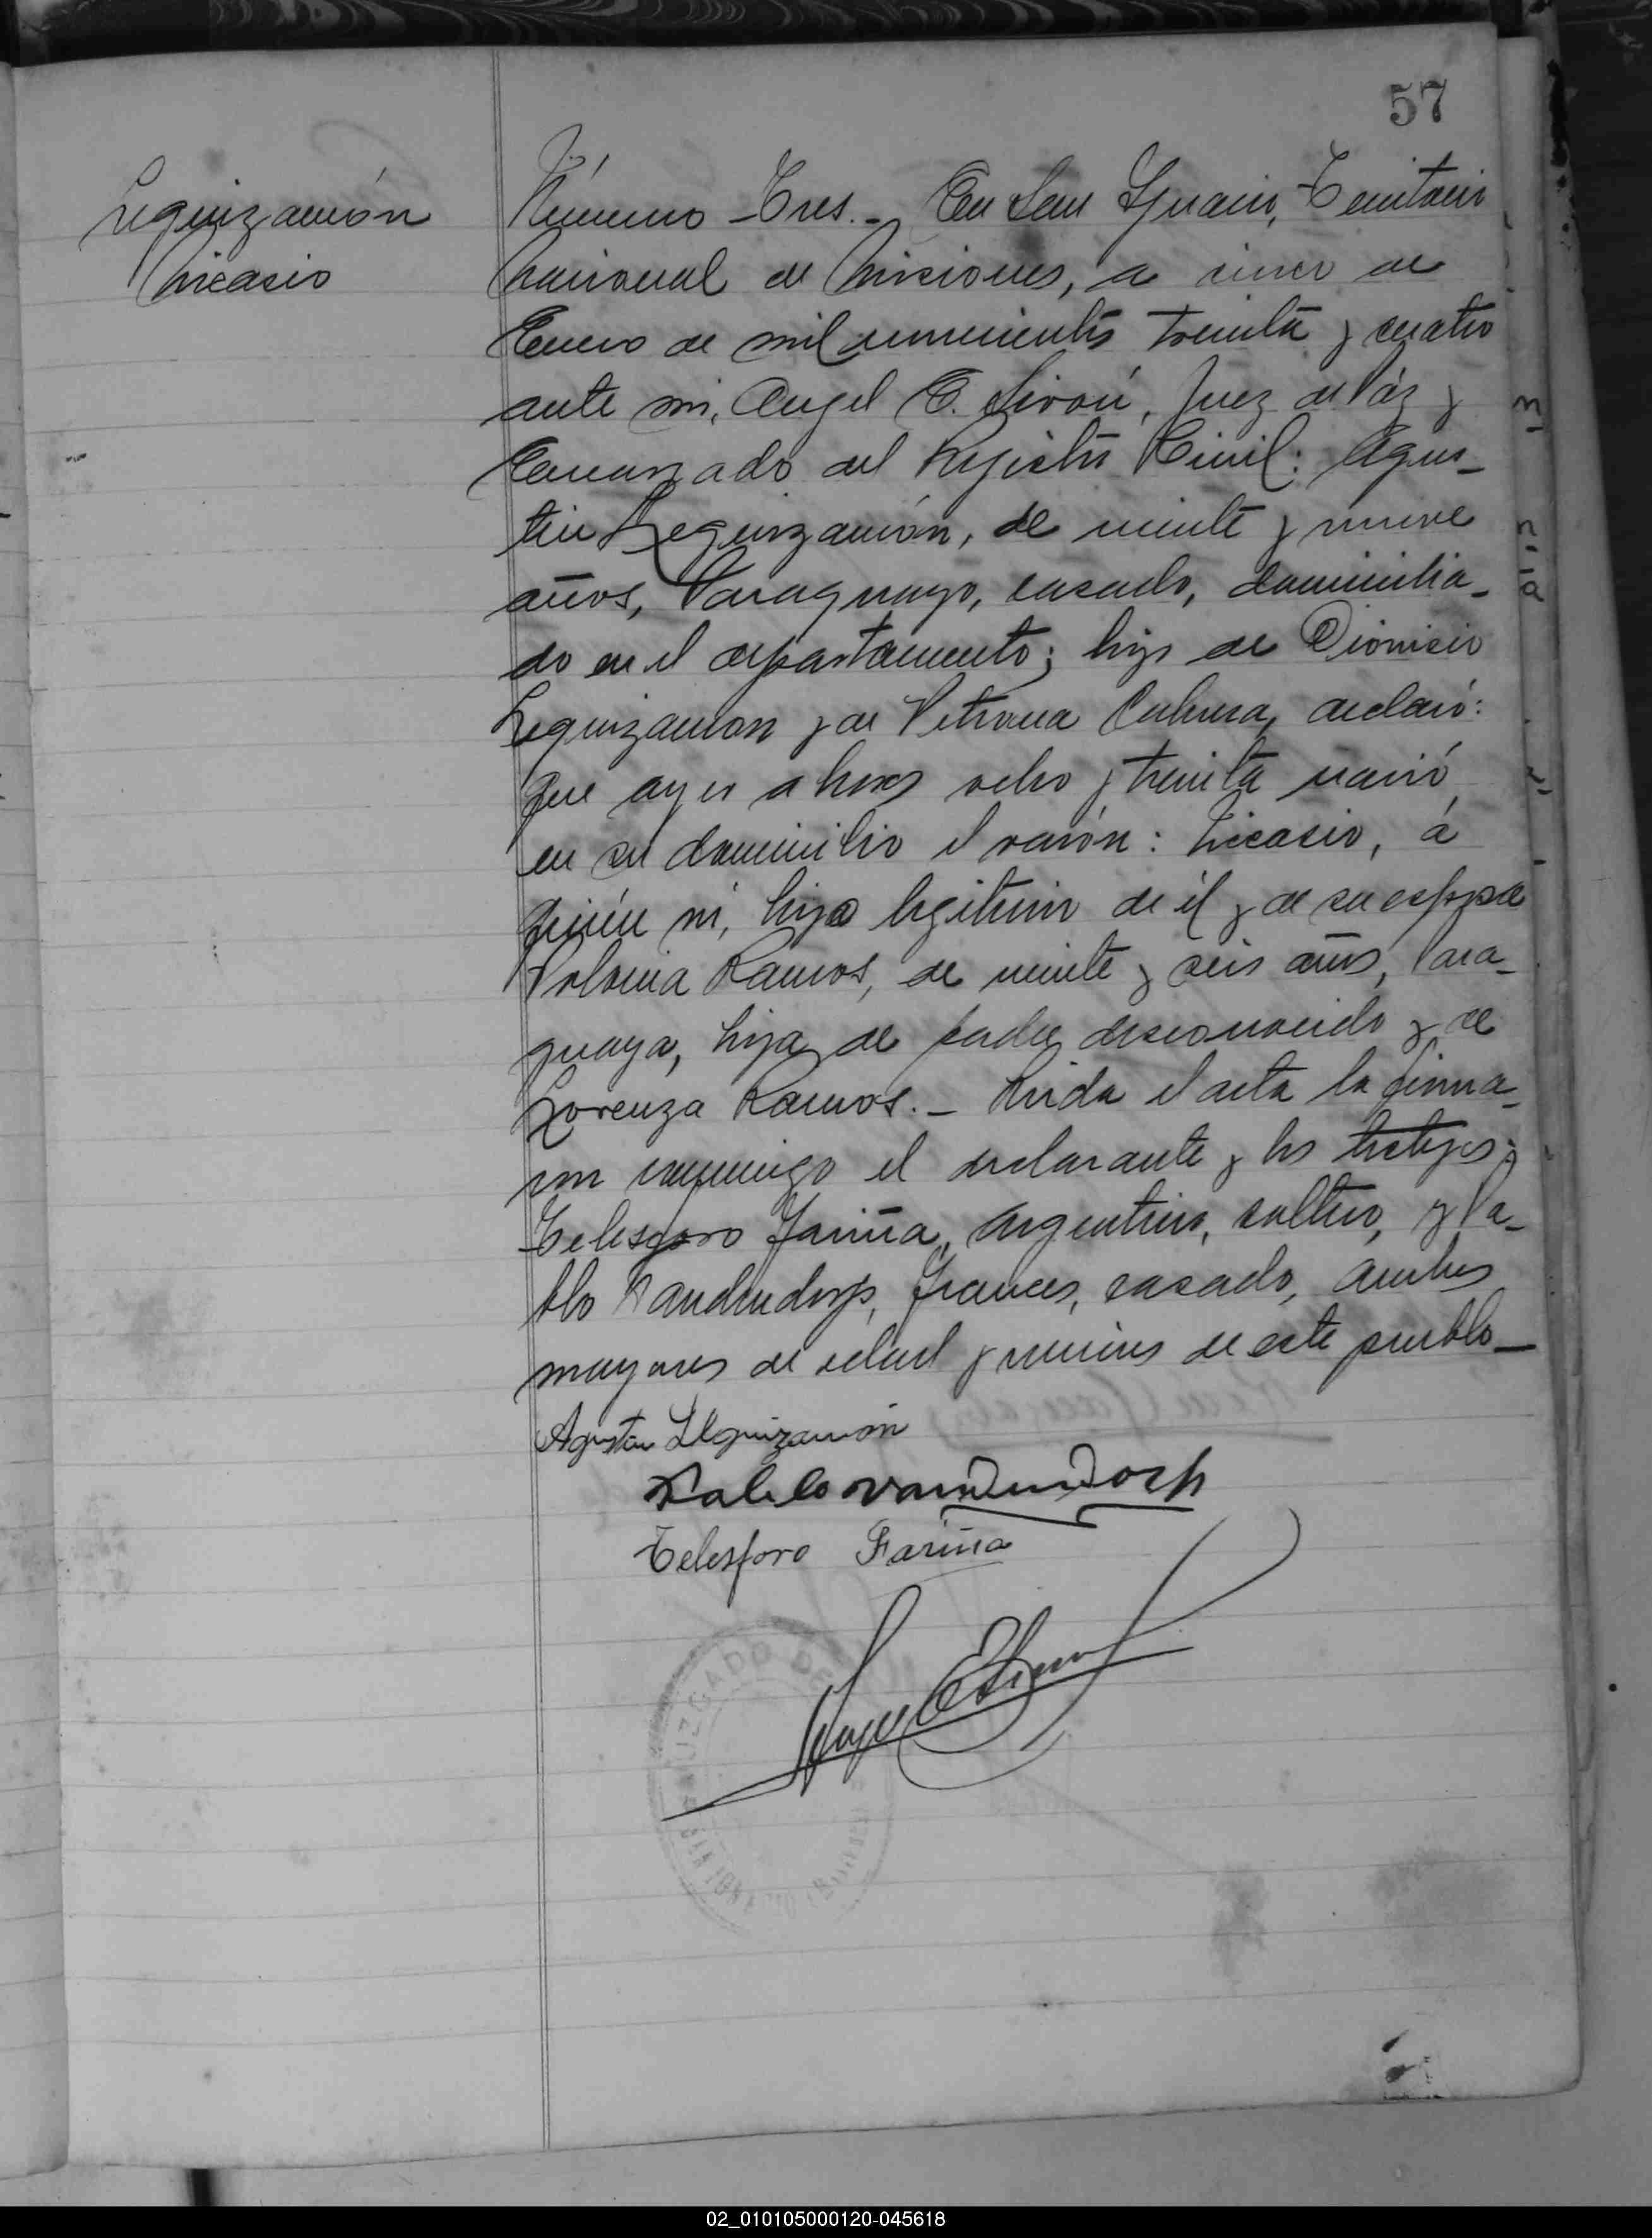 57
Leguizamón
Nicasio
Número Tres.- En San Ignacio, Territorio
Nacional de Misiones, a cinco de
Enero de mil novecientos treinta y cuatro
ante mi, Angel E. Juez de Páz y
Encargado del Registro Civil: Agus-
tin Leguizamón, de veinte y nueve
años, Paraguayo, casado, domicilia-
do en el departamento; hijo de Dionisio
Leguizamon y de Petrona Cabrera, declaró:
Que ayer a horas ocho y treinta nació,
en su domicilio el varón: Nicasio, á
quién vi, hijo legitimo de él y de su esposa
Polonia Ramos, de veinte y seis años, Para-
guaya, hija de padre desconocido y de
Lorenza Ramos.- Leida el acta la firma-
ron conmigo el declarante y los testigos:
Telesforo Fariña, Argentino, soltero, y Pa-
blo Vandendorp, Frances, casado, ambos
mayores de edad y vecinos de este pueblo-
Agustin Leguizamón
Pablo Vandendorp
Telesforo Fariña
JUZGADO DE
SAN IGNACIO